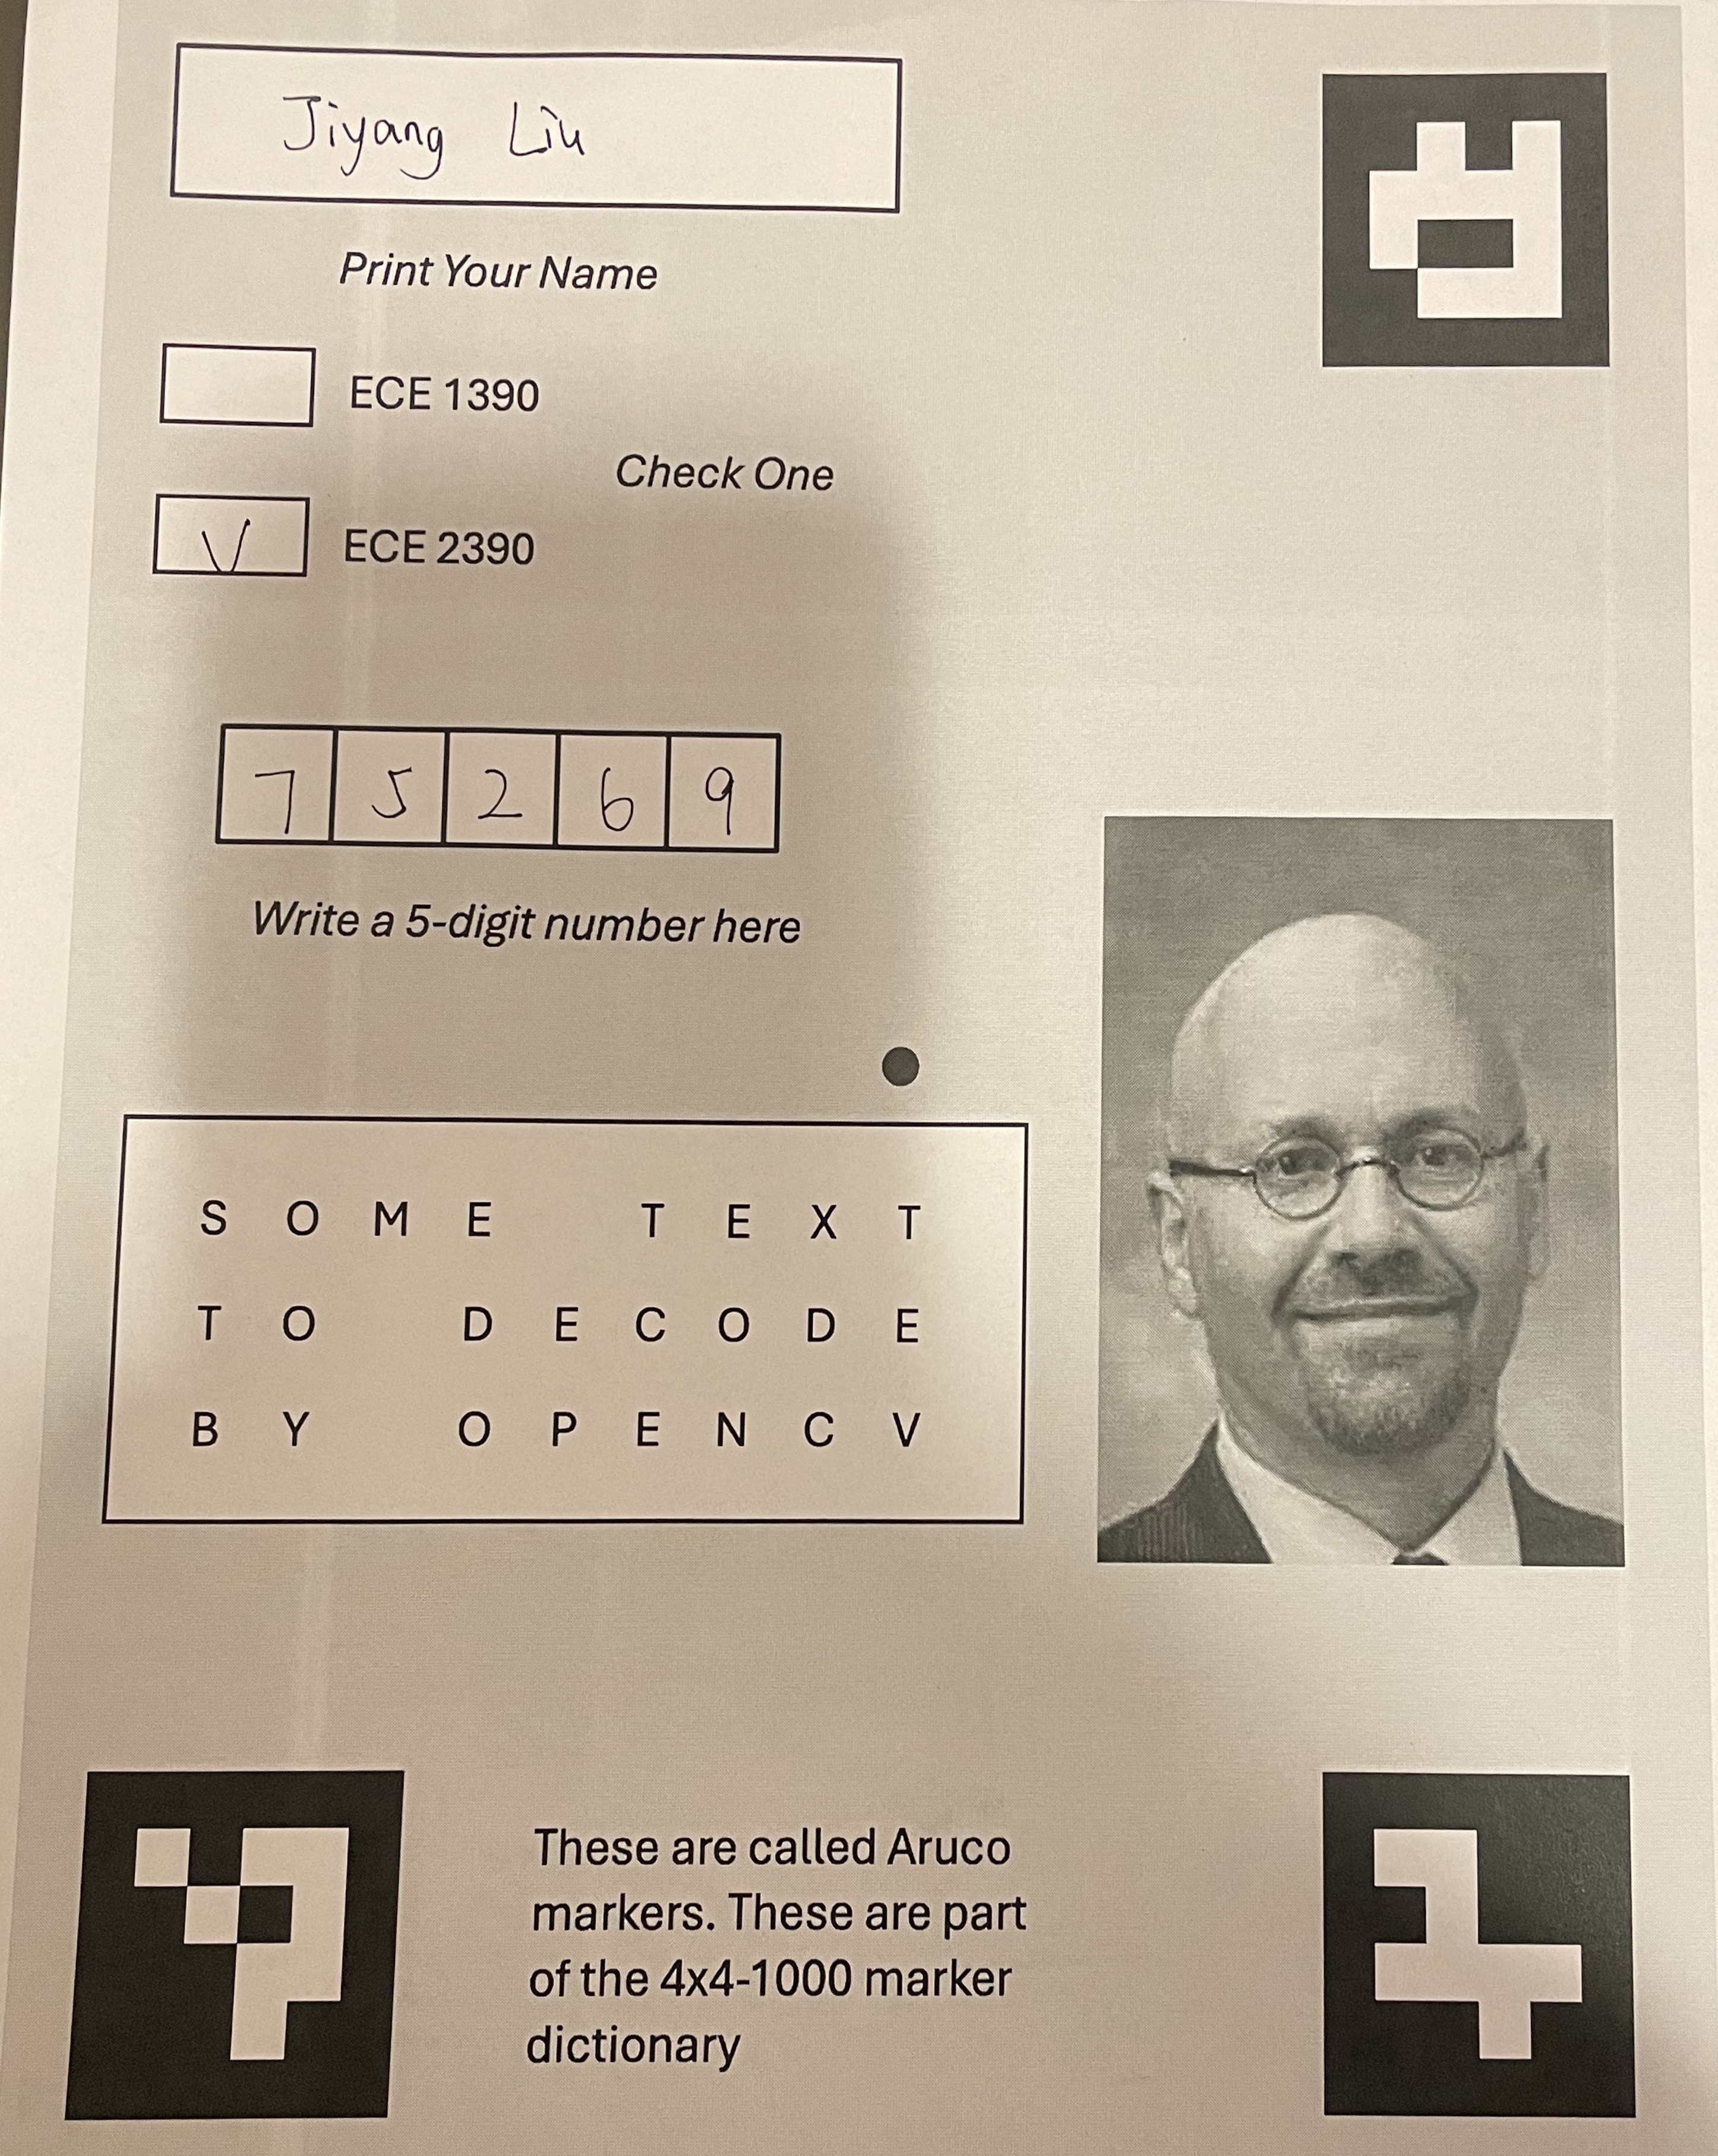 Jiyang Liu
Print Your Name
ECE 1390
Check One
V ECE 2390
7 5 2 6 9
Write a 5-digit number here
S O M E T E X T
T O D E C O D E
B Y O P E N C V
These are called Aruco
markers. These are part
of the 4x4-1000 marker
dictionary